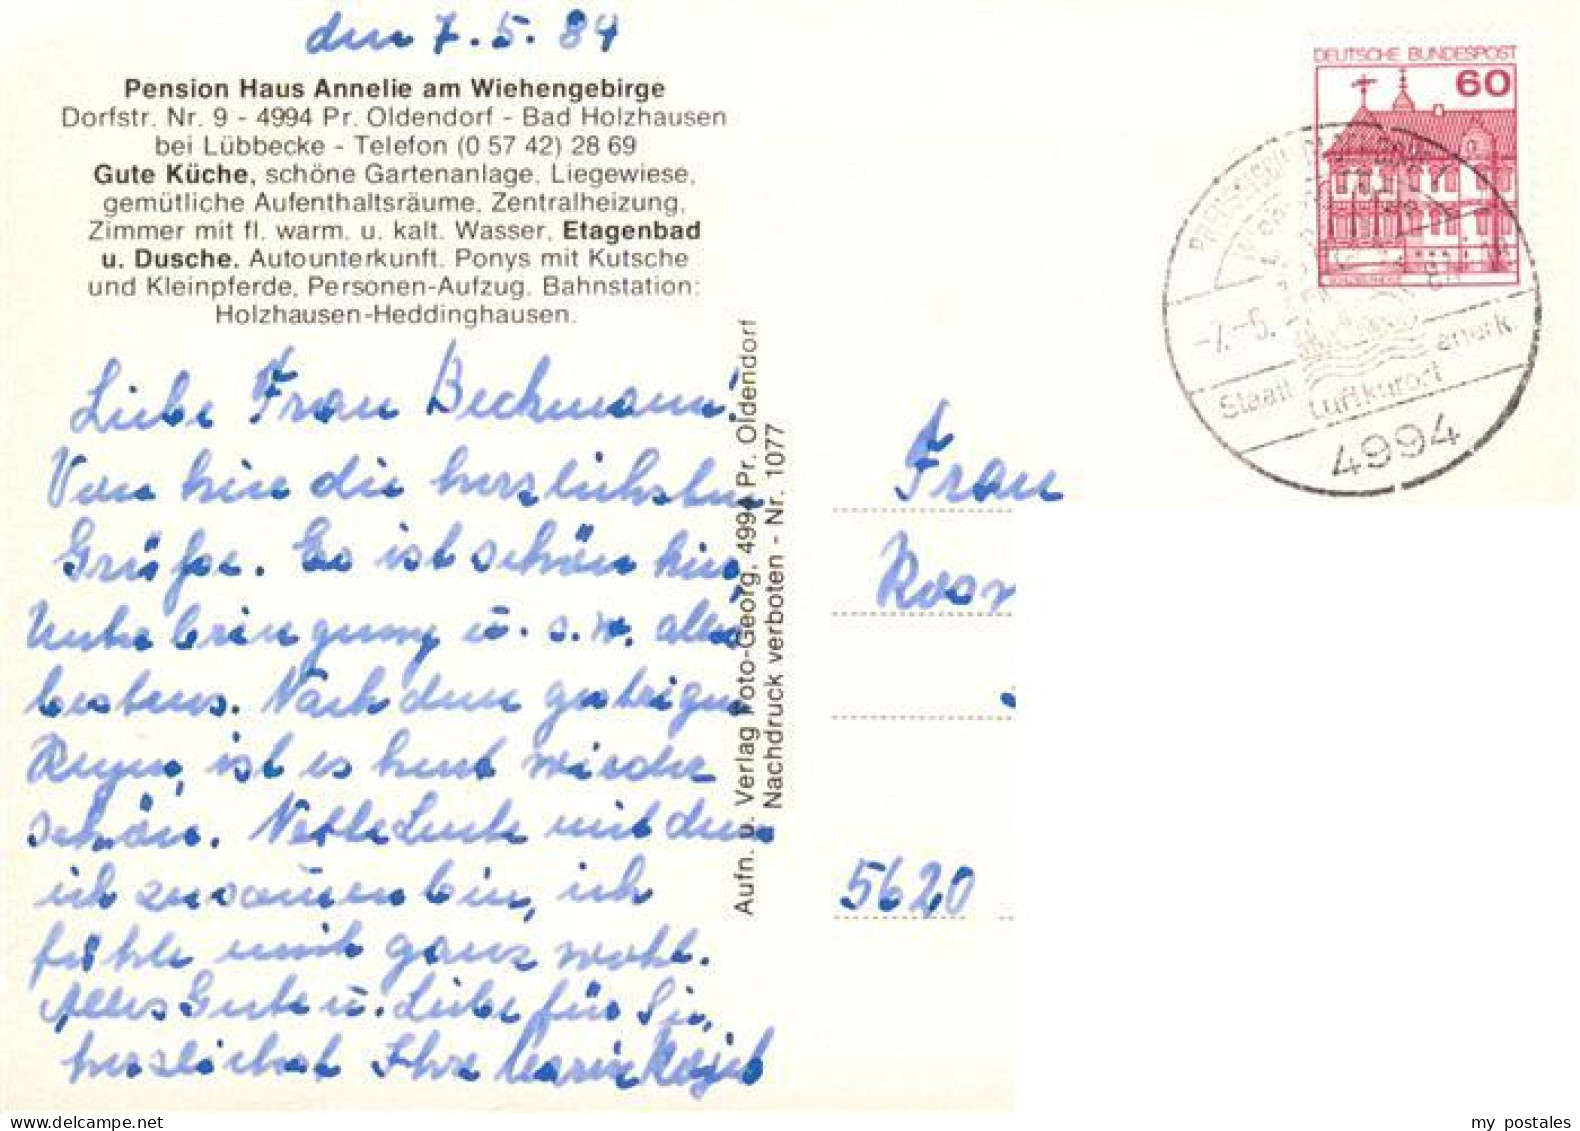 den 7.5.84
Pension Haus Annelie am Wiehengebirge
Dorfstr. Nr. 9 - 4994 Pr. Oldendorf - Bad Holzhausen
bei Lübbecke - Telefon (0 57 42) 28 69
Gute Küche, schöne Gartenanlage, Liegewiese,
gemütliche Aufenthaltsräume, Zentralheizung,
Zimmer mit fl. warm. u. kalt. Wasser, Etagenbad
u. Dusche. Autounterkunft. Ponys mit Kutsche
und Kleinpferde, Personen-Aufzug. Bahnstation:
Holzhausen-Heddinghausen.
Liebe Frau Beckmann!
Von hier die herzlichsten
Grüße. Es ist schön hier
Unterbringung u.s.w. alles
bestens. Nach dem gestrigen
Regen, ist es heut wieder
schön. Nette Leute mit denen
ich zusamen bin, ich
fühle mich ganz wohl.
Alles Gute u. Liebe für Sie,
herzlichst Ihre
Aufn. u. Verlag Foto-Georg, 4994 Pr. Oldendorf
Nachdruck verboten - Nr. 1077
DEUTSCHE BUNDESPOST
60
-7.-5.
Staatl. anerk.
Luftkurort
4994
Frau
5620
my postales